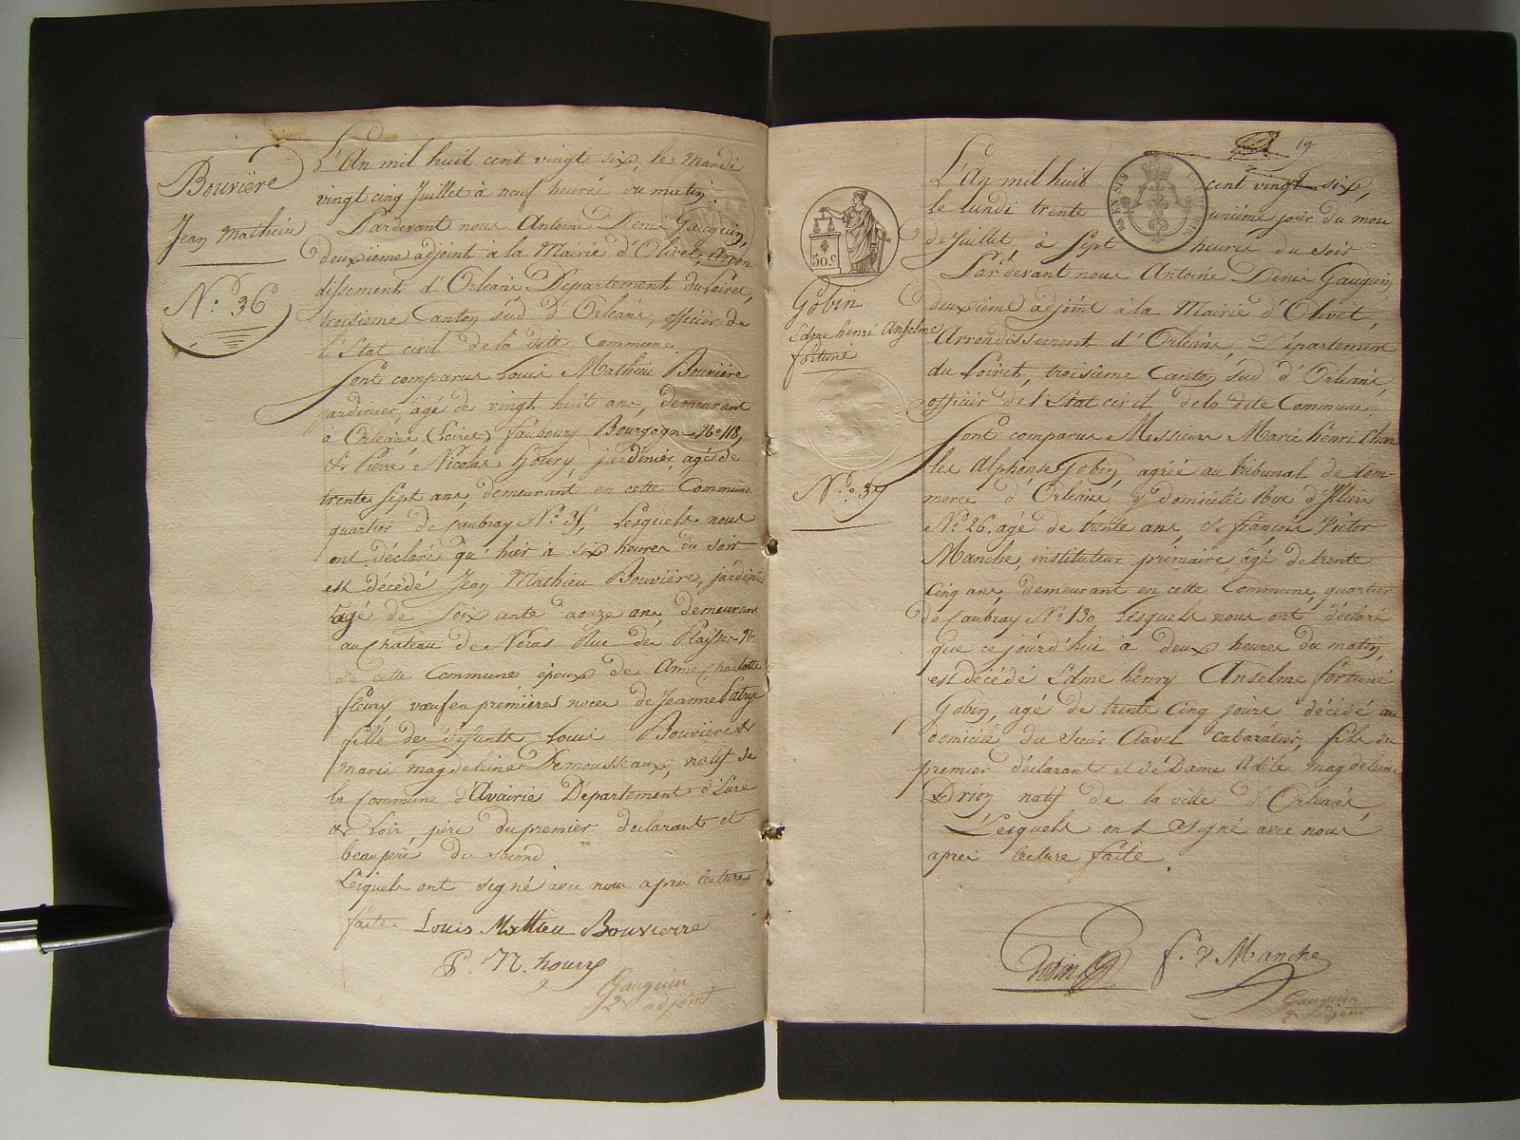 Bouvière
Jean Mathieu
N.º 36
L'An mil huit cent vingt six, le mardi
vingt cinq Juillet à neuf heures du matin.
Pardevant nous Antoine Denis Gauguin,
deuxieme adjoint à la Mairie d'Olivet, Arron
dissement d'Orléans Département du Loiret,
troisieme Canton sud d'Orléans, officier de
l'Etat civil de la dite Commune.
Sont comparus Louis Mathieu Bouvière
jardinier, âgé de vingt huit ans, demeurant
à Orléans (Loiret) faubourg Bourgogne Nº 118,
et Pierre Nicolas houry, jardinier, agé de
trente sept ans, demeurant en cette Commune
quartier de Caubray Nº 35, Lesquels nous
ont déclaré qu'hier à six heures du soir
est décédé Jean Mathieu Bouvière, jardinier
agé de soixante douze ans, demeurant
au chateau de Rue de
de cette Commune époux de Anne Charlotte
fleury veuf en premières noces de Jeanne
fils de défunts Louis Bouvière et
marie magdeleine Demousseaux, natif de
la Commune d' Departement d'Eure
et Loir, père du premier declarant et
beaupère du second.
Lesquels ont signé avec nous après lecture
faite. Louis Mathieu Bouvierre
P. N. houry
Gauguin
2e adjoint
19
L'An mil huit cent vingt six,
le lundi trente unième jour du mois
de Juillet à sept heures du soir
Par devant nous Antoine Denis Gauguin,
deuxième adjoint à la Mairie d'Olivet,
Arrondissement d'Orléans, Département
du Loiret, troisième Canton sud d'Orléans,
officier de l'Etat civil de la dite Commune.
50 c
Gobin
Edme henri Anselme
fortuné
N.º 37
Sont comparus Messieurs Marie henri Char
les Alphonse Gobin, agréé au tribunal de Com-
merce d'Orléans, y domicilié rue d'Illiers
Nº 26, agé de trente ans, et françois Victor
Manche, instituteur primaire âgé de trente
cinq ans, demeurant en cette Commune, quartier
de Caubray Nº 130, Lesquels nous ont déclaré
que ce jourd'hui à deux heures du matin,
est décédé Edme henry Anselme fortuné
Gobin, agé de trente cinq jours décédé au
domicile du Sieur Clavel cabaretier, fils du
premier déclarant et de Dame Adèle magdeleine
Drion natif de la ville d'Orléans.
Lesquels ont signé avec nous
après lecture faite.
Gobin
f. V Manche
Gauguin
2e adjoint